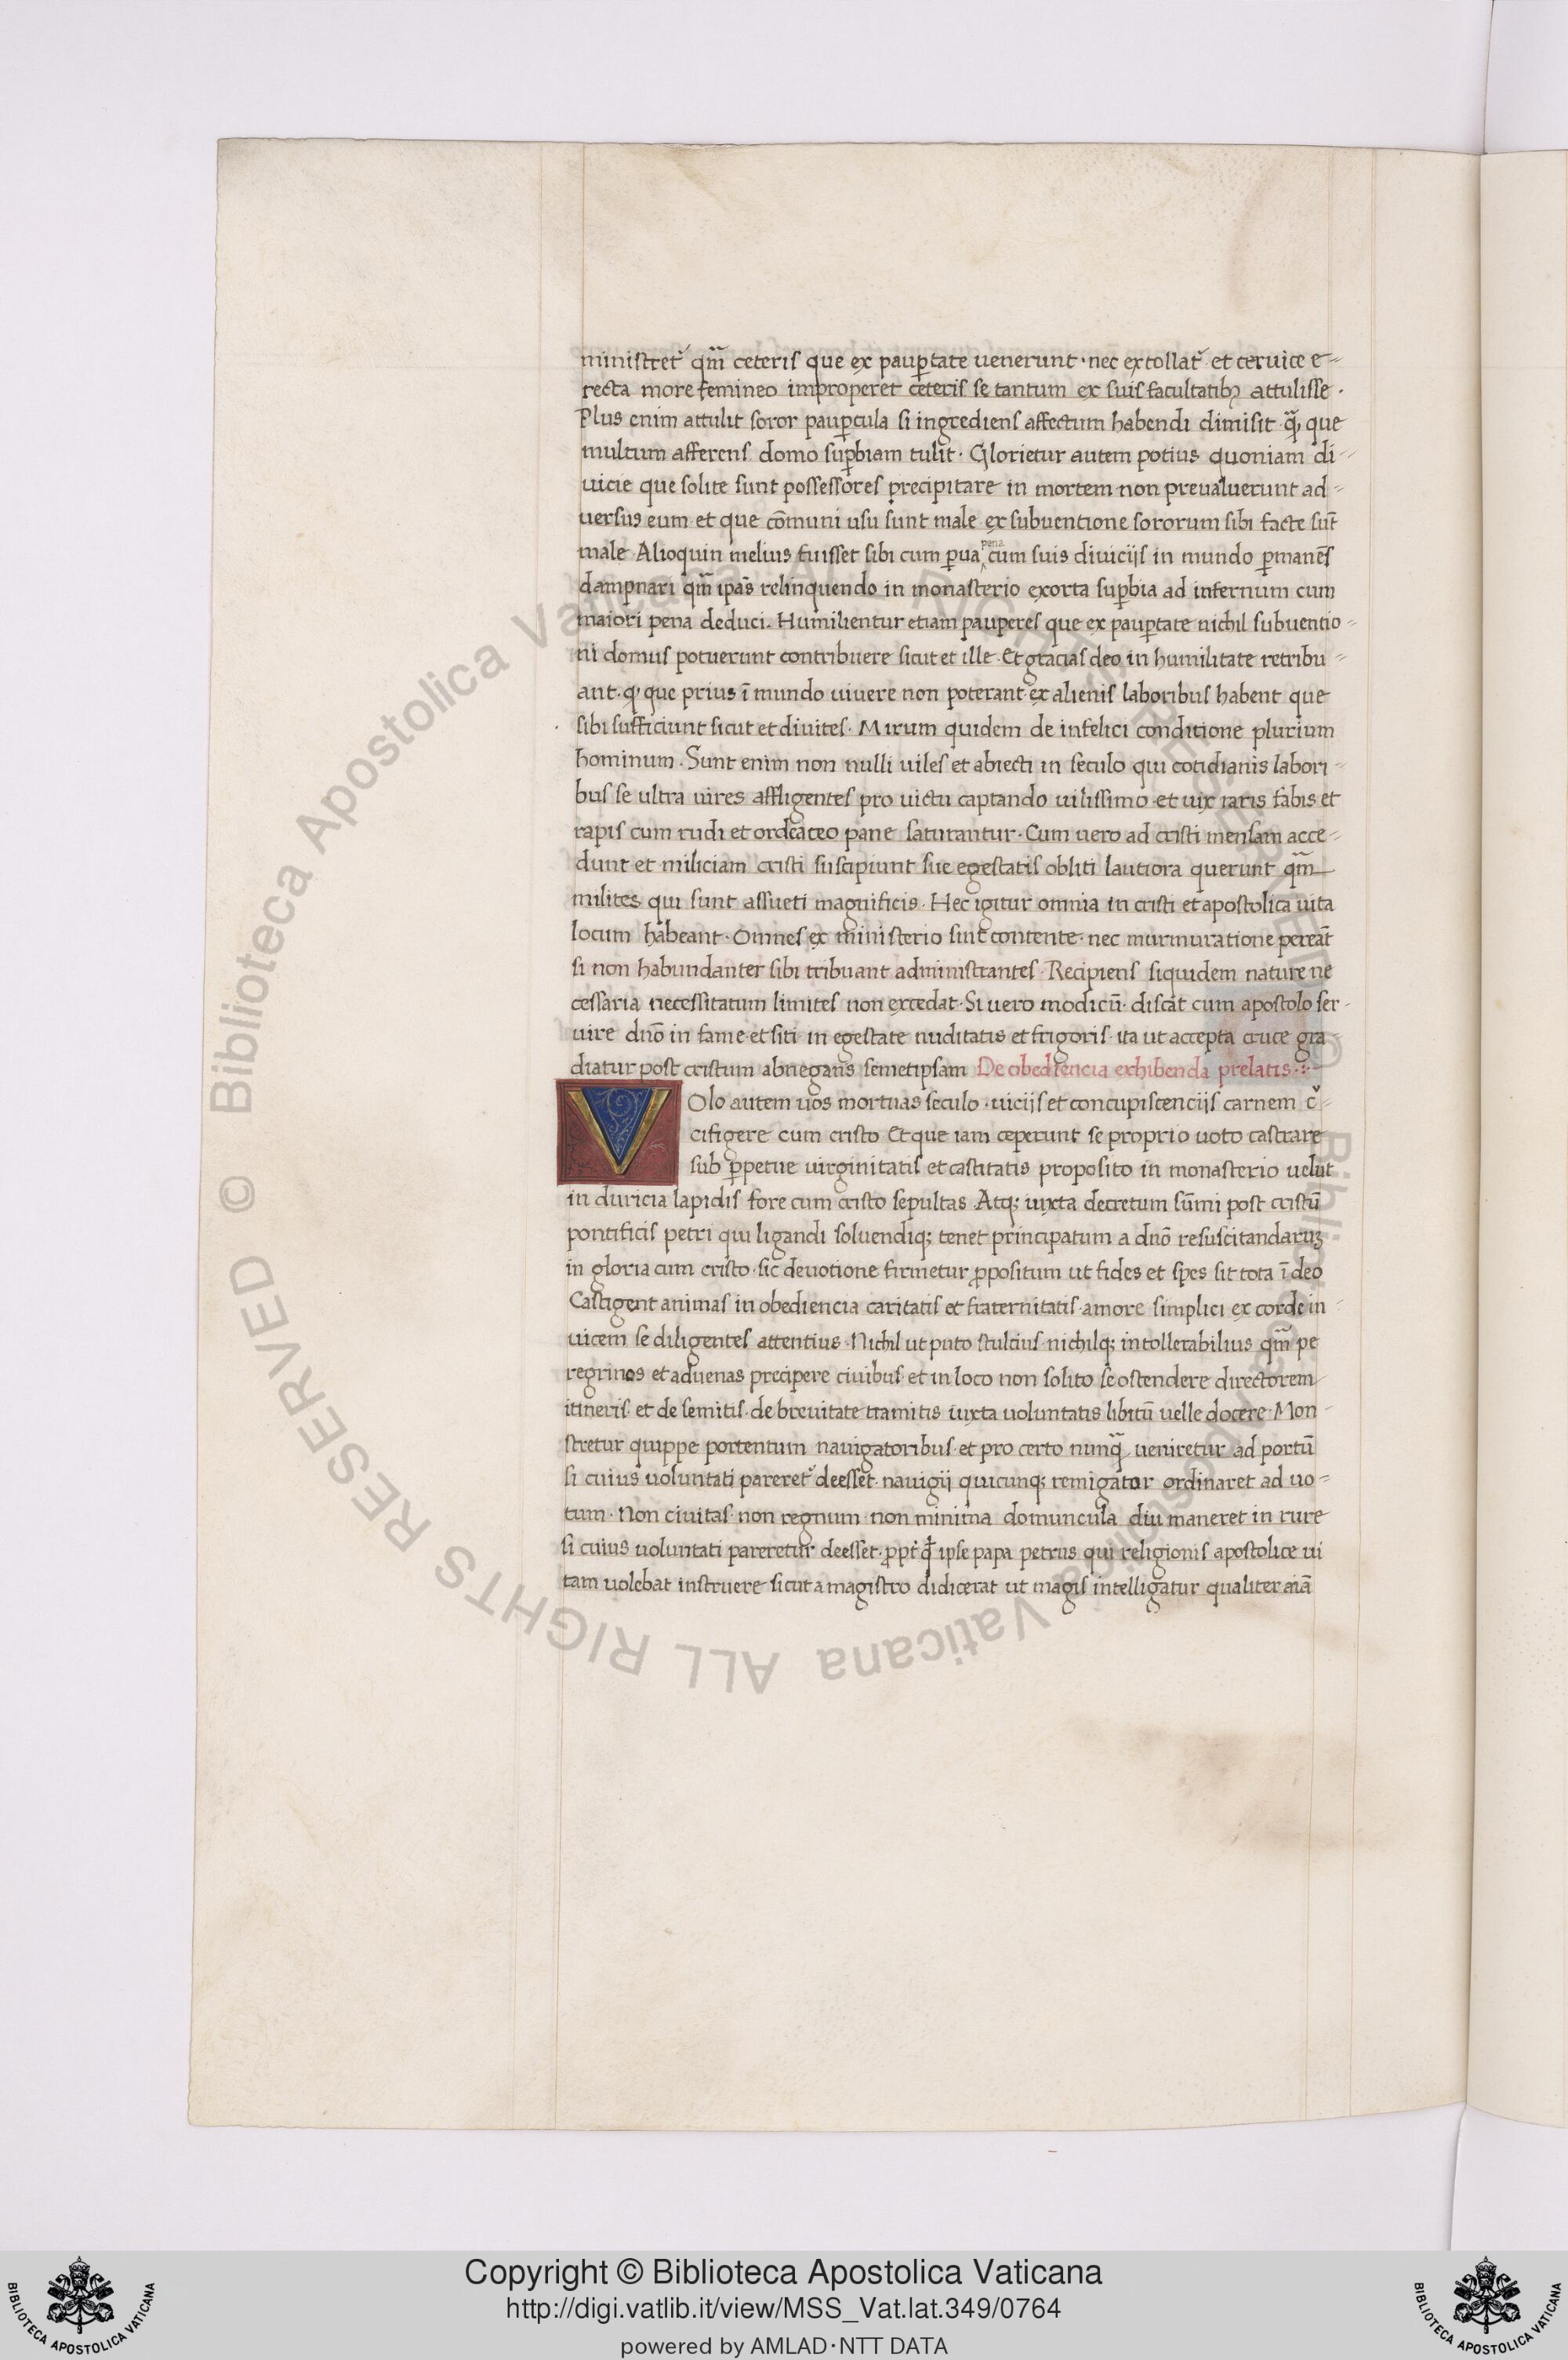 ministret᷑ qm̅ ceteris que ex pauꝑtate uenerunt · nec extollat᷑ et ceruice e-
recta more femineo improperet ceteris se tantum ex suis facultatibꝫ attulisse ·
Plus enim attulit soror pauꝑcula si ingrediens affectum habendi dimisit q̅ꝫ que
multum afferens domo suꝑbiam tulit · Glorietur autem potius quoniam di-
uicie que solite sunt possessores precipitare in mortem non preualuerunt ad-
uersus eum et que cōmuni usu sunt male ex subuentione sororum sibi facte su̅t
male · Alioquin melius fuisset sibi cum ꝑua pena cum suis diuicijs in mundo ꝑmane̅s
dampnari qm̅ ipas̅ relinquendo in monasterio exorta suꝑbia ad infernum cum
maiori pena deduci. Humilientur etiam pauperes que ex pauꝑtate nichil subuentio-
ni domus potuerunt contribuere sicut et ille · Et gracias deo in humilitate retribu-
ant · ꝙ que prius i̅ mundo uiuere non poterant ex alienis laboribus habent que
sibi sufficiunt sicut et diuites · Mirum quidem de infelici conditione plurium
hominum · Sunt enim non nulli uiles et abiecti in seculo qui cotidianis labori-
bus se ultra uires affligentes pro uictu captando uilissimo et uix raris fabis et
rapis cum rudi et ordeaceo pane saturantur · Cum uero ad cristi mensam acce-
dunt et miliciam cristi suscipiunt sue egestatis obliti lautiora querunt qm̅
milites qui sunt assueti magnificis · Hec igitur omnia in cristi et apostolica uita
locum habeant · Omnes ex ministerio sint contente · nec murmuratione perea̅t
si non habundanter sibi tribuant administrantes · Recipiens siquidem nature ne
cessaria necessitatum limites non excedat · Si uero modicu̅ · discat cum apostolo ser-
uire dn̅o in fame et siti in egestate nuditatis et frigoris · ita ut accepta cruce gra
diatur post cristum abnegans semetipsam De obediencia exhibenda prelatis ·:·
Volo autem uos mortuas seculo · uicijs et concupiscencijs carnem c᷑-
cifigere cum cristo Et que iam ceperunt se proprio uoto castrare
sub ꝑpetue uirginitatis et castitatis proposito in monasterio uelut
in duricia lapidis fore cum cristo sepultas · Atqꝫ iuxta decretum su̅mi post cristu̅
pontificis petri qui ligandi soluendiqꝫ tenet principatum a dn̅o resuscitandaruꝫ
in gloria cum cristo · sic deuotione firmetur ꝓpositum ut fides et spes sit tota i̅ deo
Castigent animas in obediencia caritatis et fraternitatis · amore simplici ex corde in-
uicem se diligentes attentius · Nichil ut puto stultius · nichilqꝫ intollerabilius qm̅ pe
regrinos et aduenas precipere ciuibus · et in loco non solito se ostendere directorem
itineris · et de semitis · de breuitate tramitis iuxta uoluntatis libitu̅ uelle docere · Mon-
stretur quippe portentum nauigatoribus · et pro certo nunq̅ ueniretur ad portu̅
si cuius uoluntati pareret᷑ deesset · nauigij quicunqꝫ remigator ordinaret ad uo-
tum · Non ciuitas · non regnum non minima domuncula diu maneret in rure
si cuius uoluntati pareretur deesset · ꝓpt᷑ qd̅ ipse papa petrus qui religionis apostolice ui
tam uolebat instruere sicut a magistro didicerat ut magis intelligatur qualiter aia̅
© Biblioteca Apostolica Vaticana ALL RIGHTS RESERVED
Copyright © Biblioteca Apostolica Vaticana
http://digi.vatlib.it/view/MSS_Vat.lat.349/0764
powered by AMLAD·NTT DATA
BIBLIOTECA APOSTOLICA VATICANA
BIBLIOTECA APOSTOLICA VATICANA